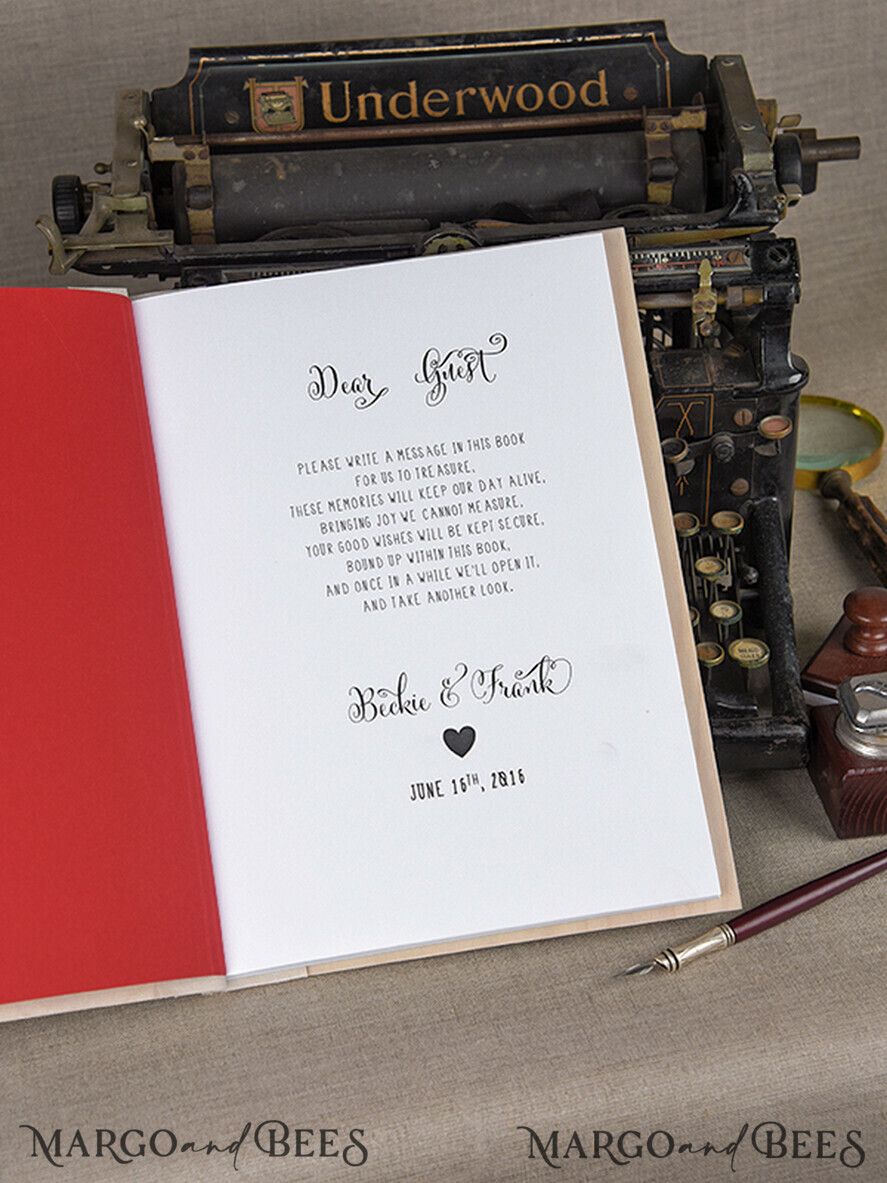 Underwood
Dear Guest
PLEASE WRITE A MESSAGE IN THIS BOOK
FOR US TO TREASURE,
THESE MEMORIES WILL KEEP OUR DAY ALIVE,
BRINGING JOY WE CANNOT MEASURE,
YOUR GOOD WISHES WILL BE KEPT SECURE,
BOUND UP WITHIN THIS BOOK,
AND ONCE IN A WHILE WE'LL OPEN IT,
AND TAKE ANOTHER LOOK.
Beckie & Frank
JUNE 16TH, 2016
MARGO and BEES
MARGO and BEES